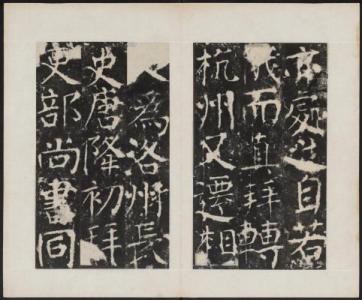 亦處之自若
俄而真拜轉
杭州又遷相
為洛州長
史唐隆初拜
吏部尚書同